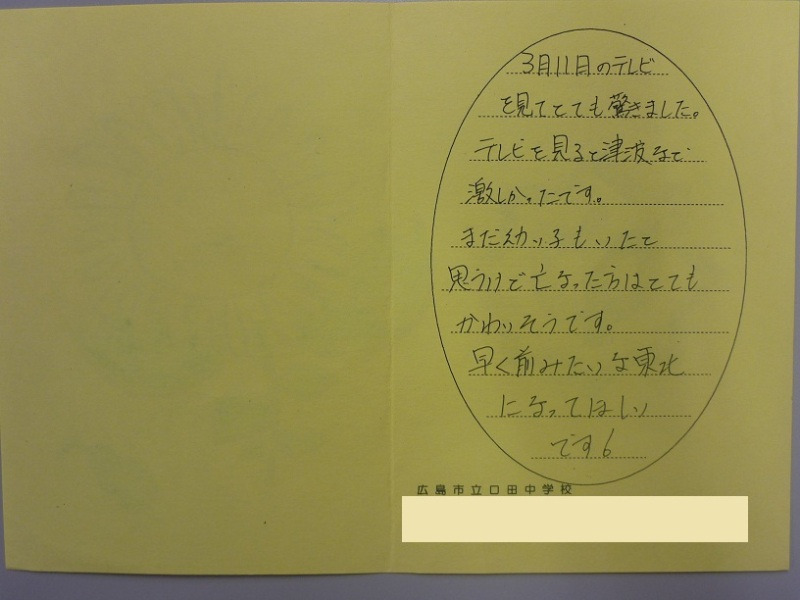 3月11日のテレビ
を見てとても驚きました。
テレビを見ると津波など
激しかったです。
まだ幼い子もいたと
思うけど亡なった方はとても
かわいそうです。
早く前みたいな東北
になってほしい
です。
広島市立口田中学校